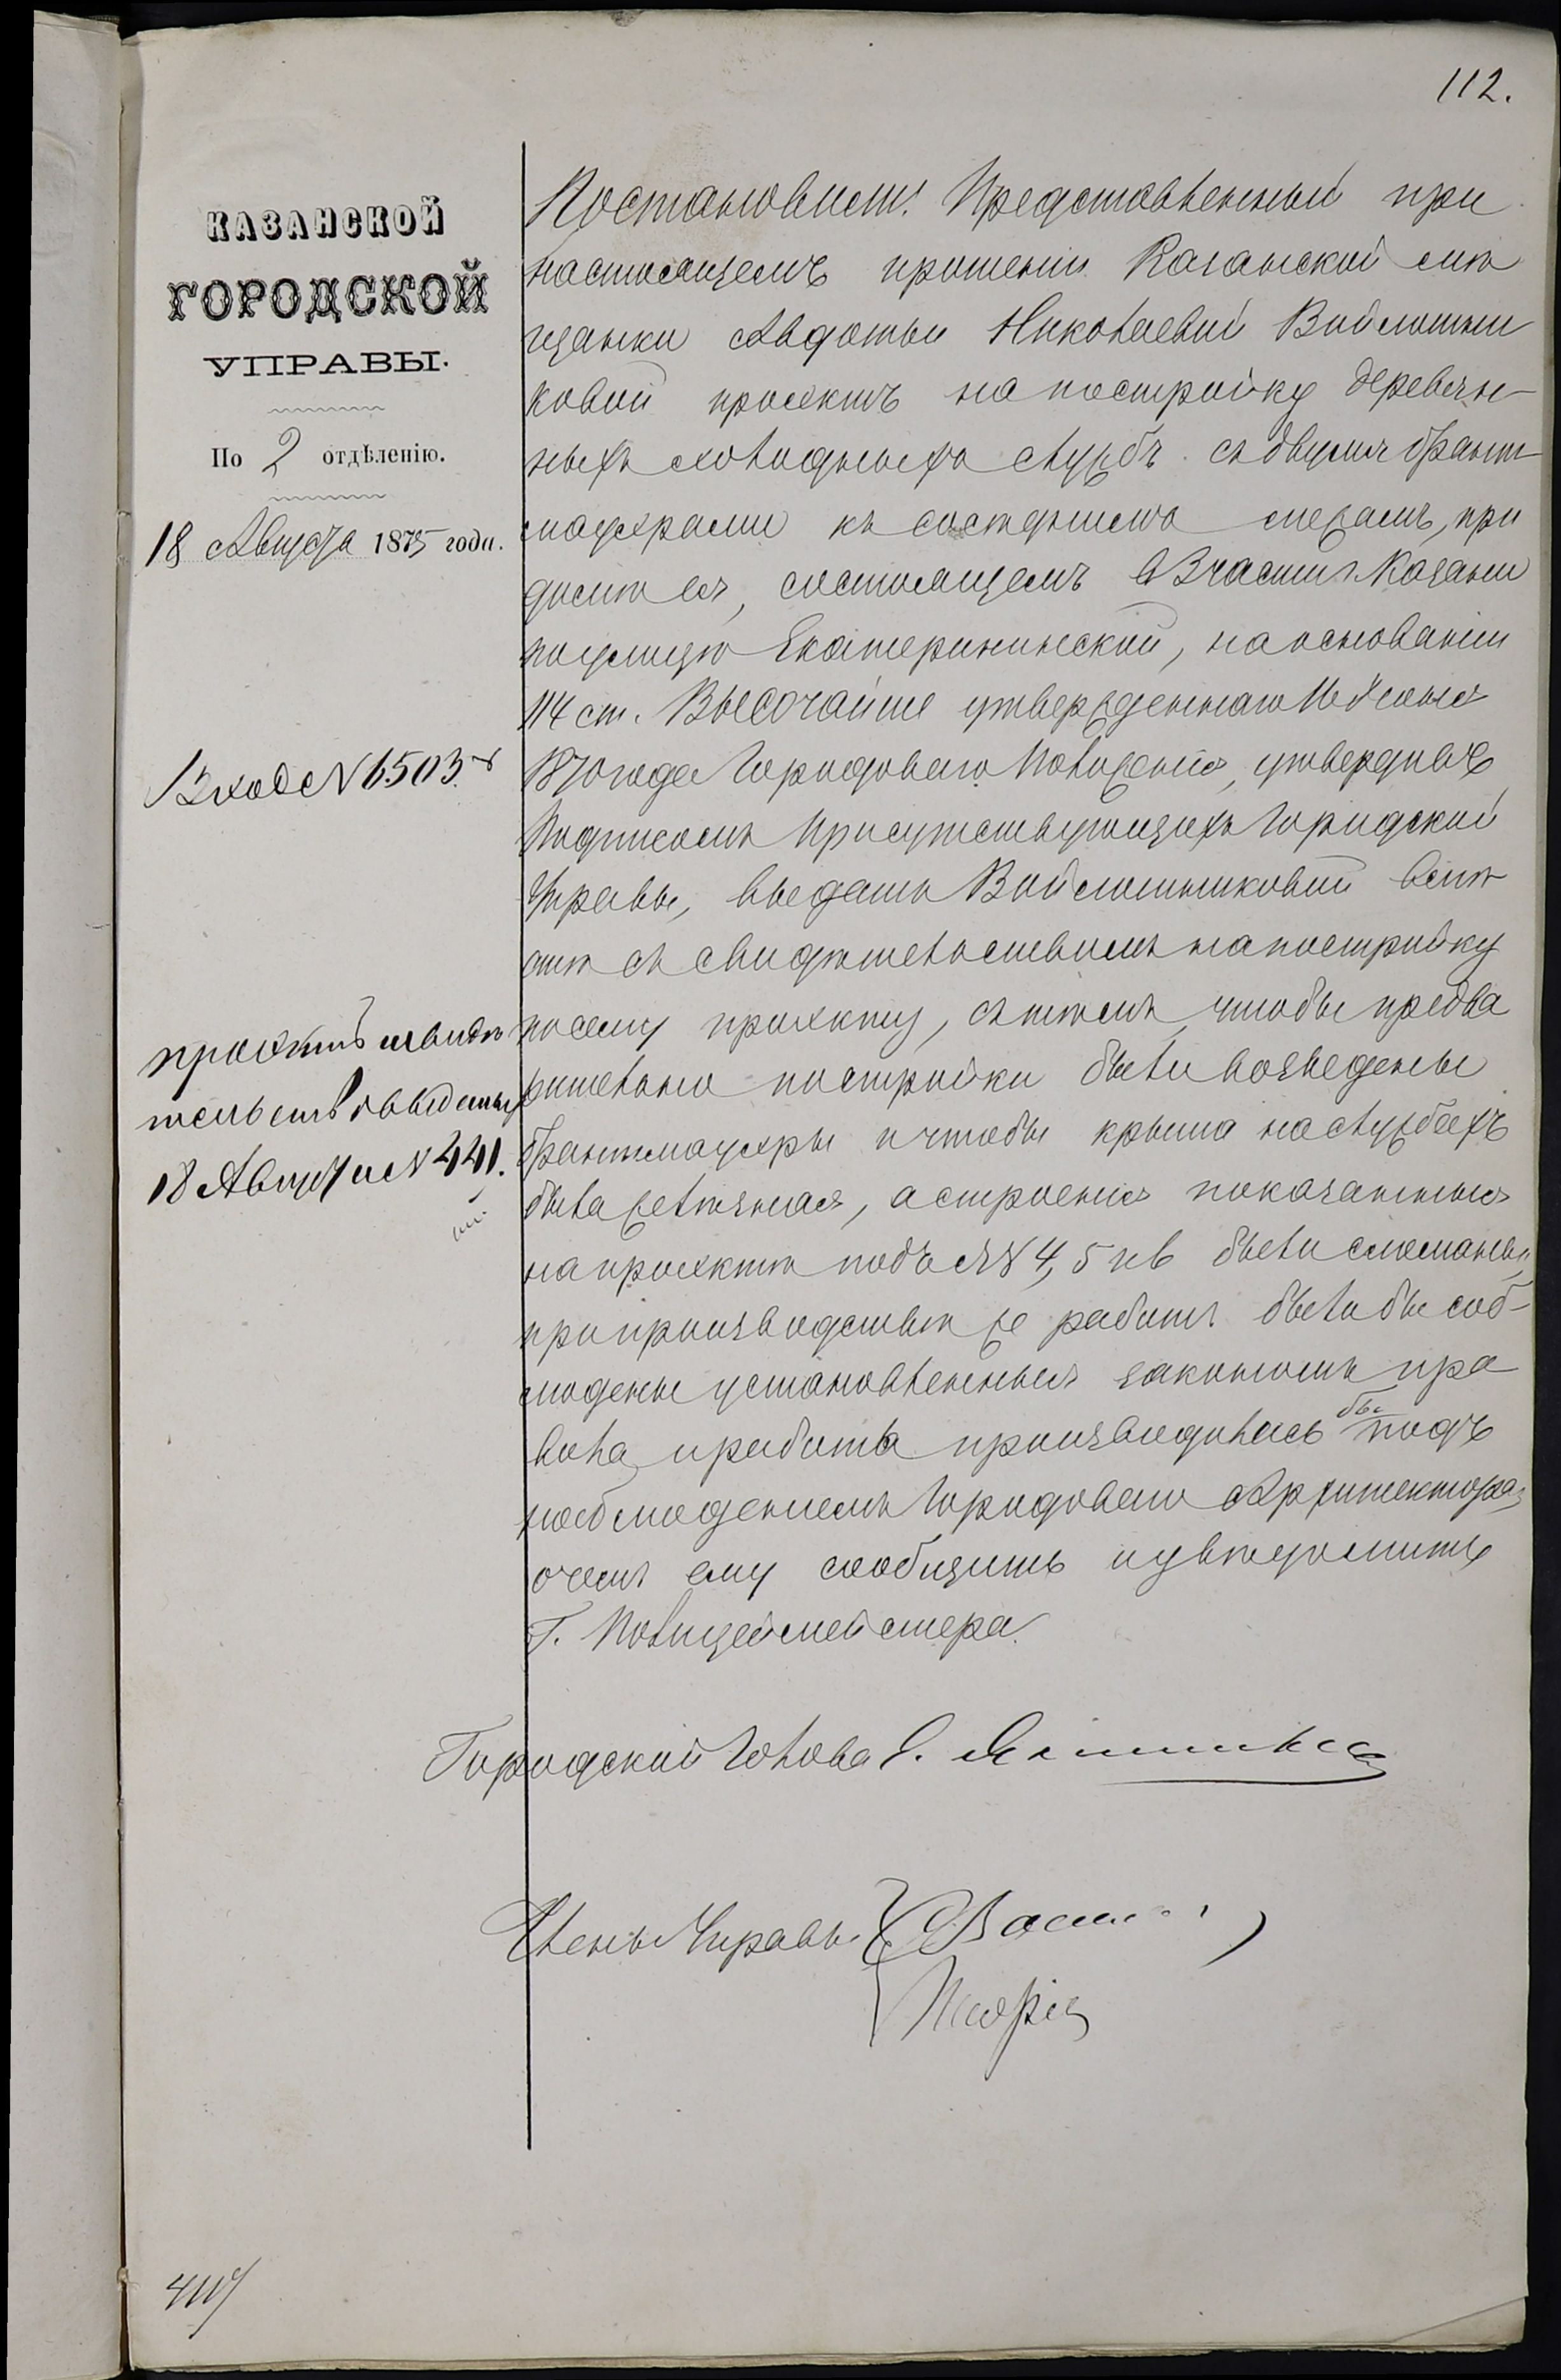 112.
КАЗАНСКОЙ
ГОРОДСКОЙ
УПРАВЫ.
По 2 отдѣленію.
18 Августа 1875 года.
Вход № 6503.
проэктъ и свидѣ
тельство выданы
18 Августа № 441.
Постановили: Представленный при
настоящемъ прошеніи Казанской мѣ
щанки Авдотьи Николаевой Войлошни
ковой проэктъ на постройку деревян-
ныхъ холодныхъ службъ съ двумя брант-
маухрами къ сосѣднимъ межамъ, при
домѣ ея, состоящемъ в 3 части г. Казани
по улицѣ Екатерининской, на основаніи
114 ст. Высочайше утвержденнаго 16 Іюня
1870 года Городоваго Положенія, утвердивъ
подписомъ присутствующихъ Городской
Управы, выдать Войлошниковой вмѣ
стѣ съ свидѣтельствомъ на постройку
по сему проэкту, съ тѣмъ, чтобы предва
рительно постройки были возведены
брантмаухры и чтобы крыша на службахъ
была желѣзная, а строенія показанныя
на проэктѣ подъ №№ 4, 5 и 6 были сломаны,
при производствѣ же работъ были бы соб-
людены установленныя закономъ пра
вила, и работа производилась бы подъ
наблюденіемъ Городоваго Архитектора,
о чемъ ему сообщить и увѣдомить
Г. Полицеймейстера.
Городской Голова
Члены Управы